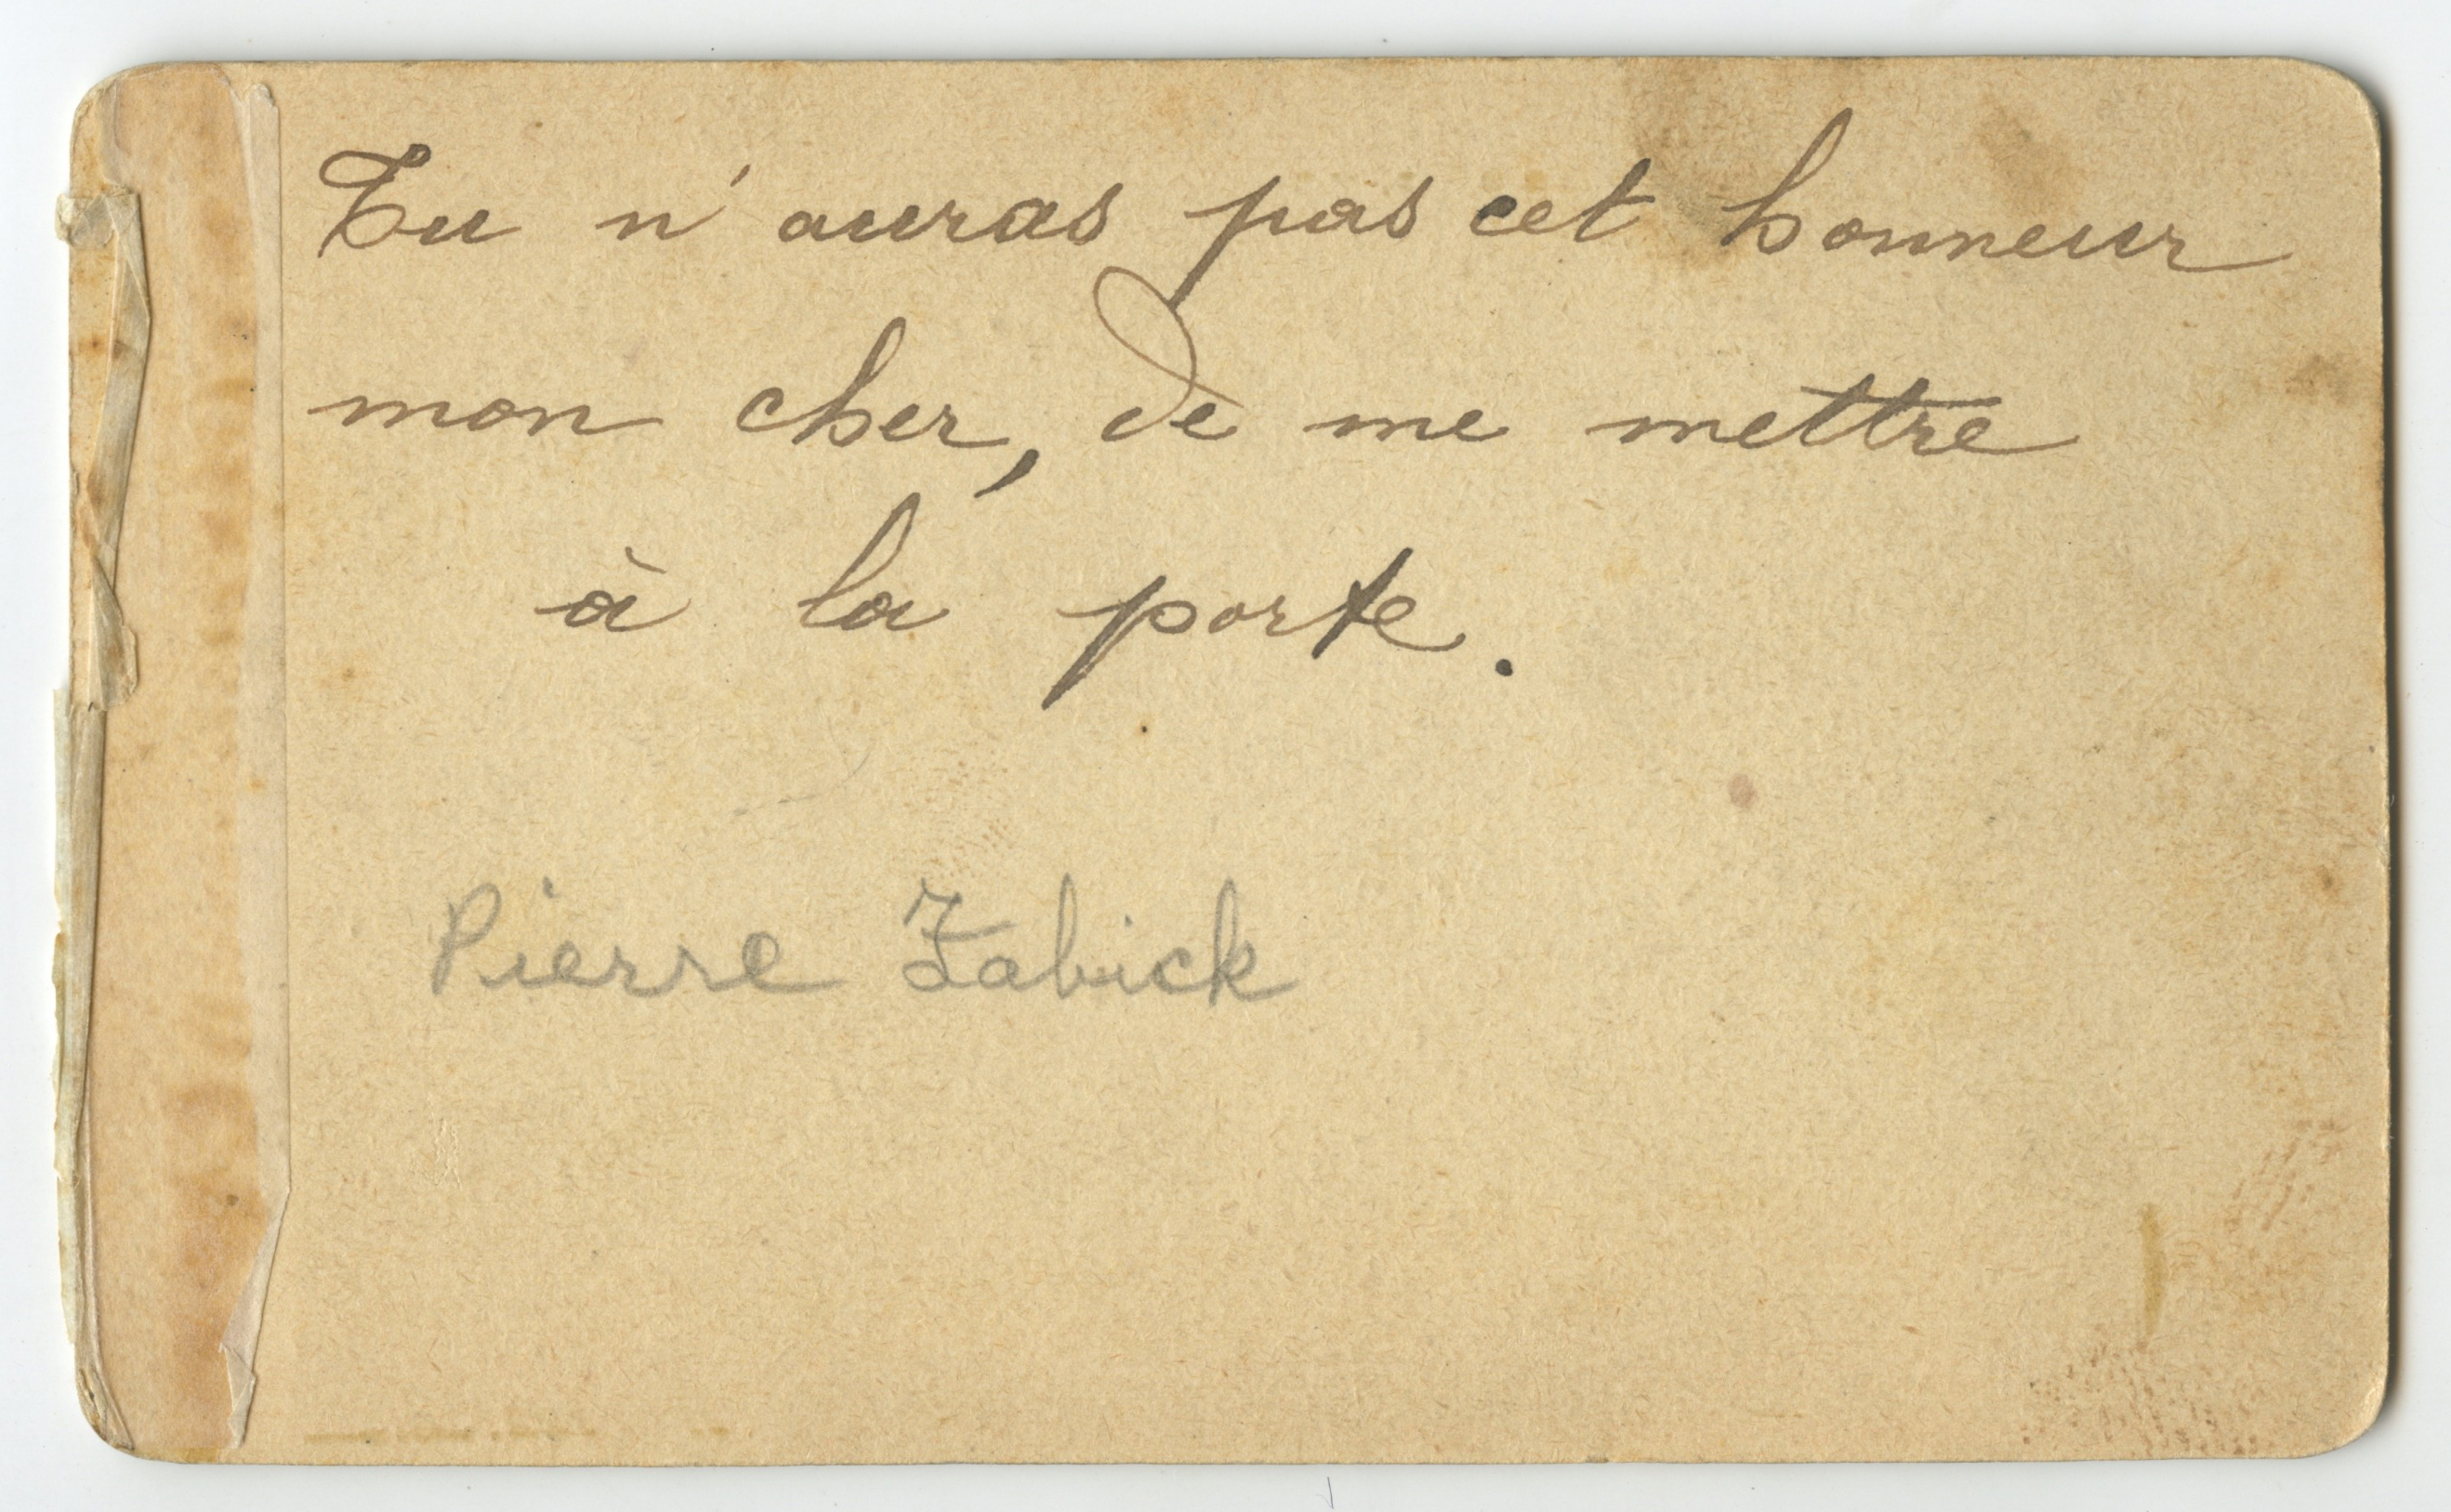 Tu n'auras pas cet honneur
mon cher, de me mettre
à la porte.
Pierre Zabick